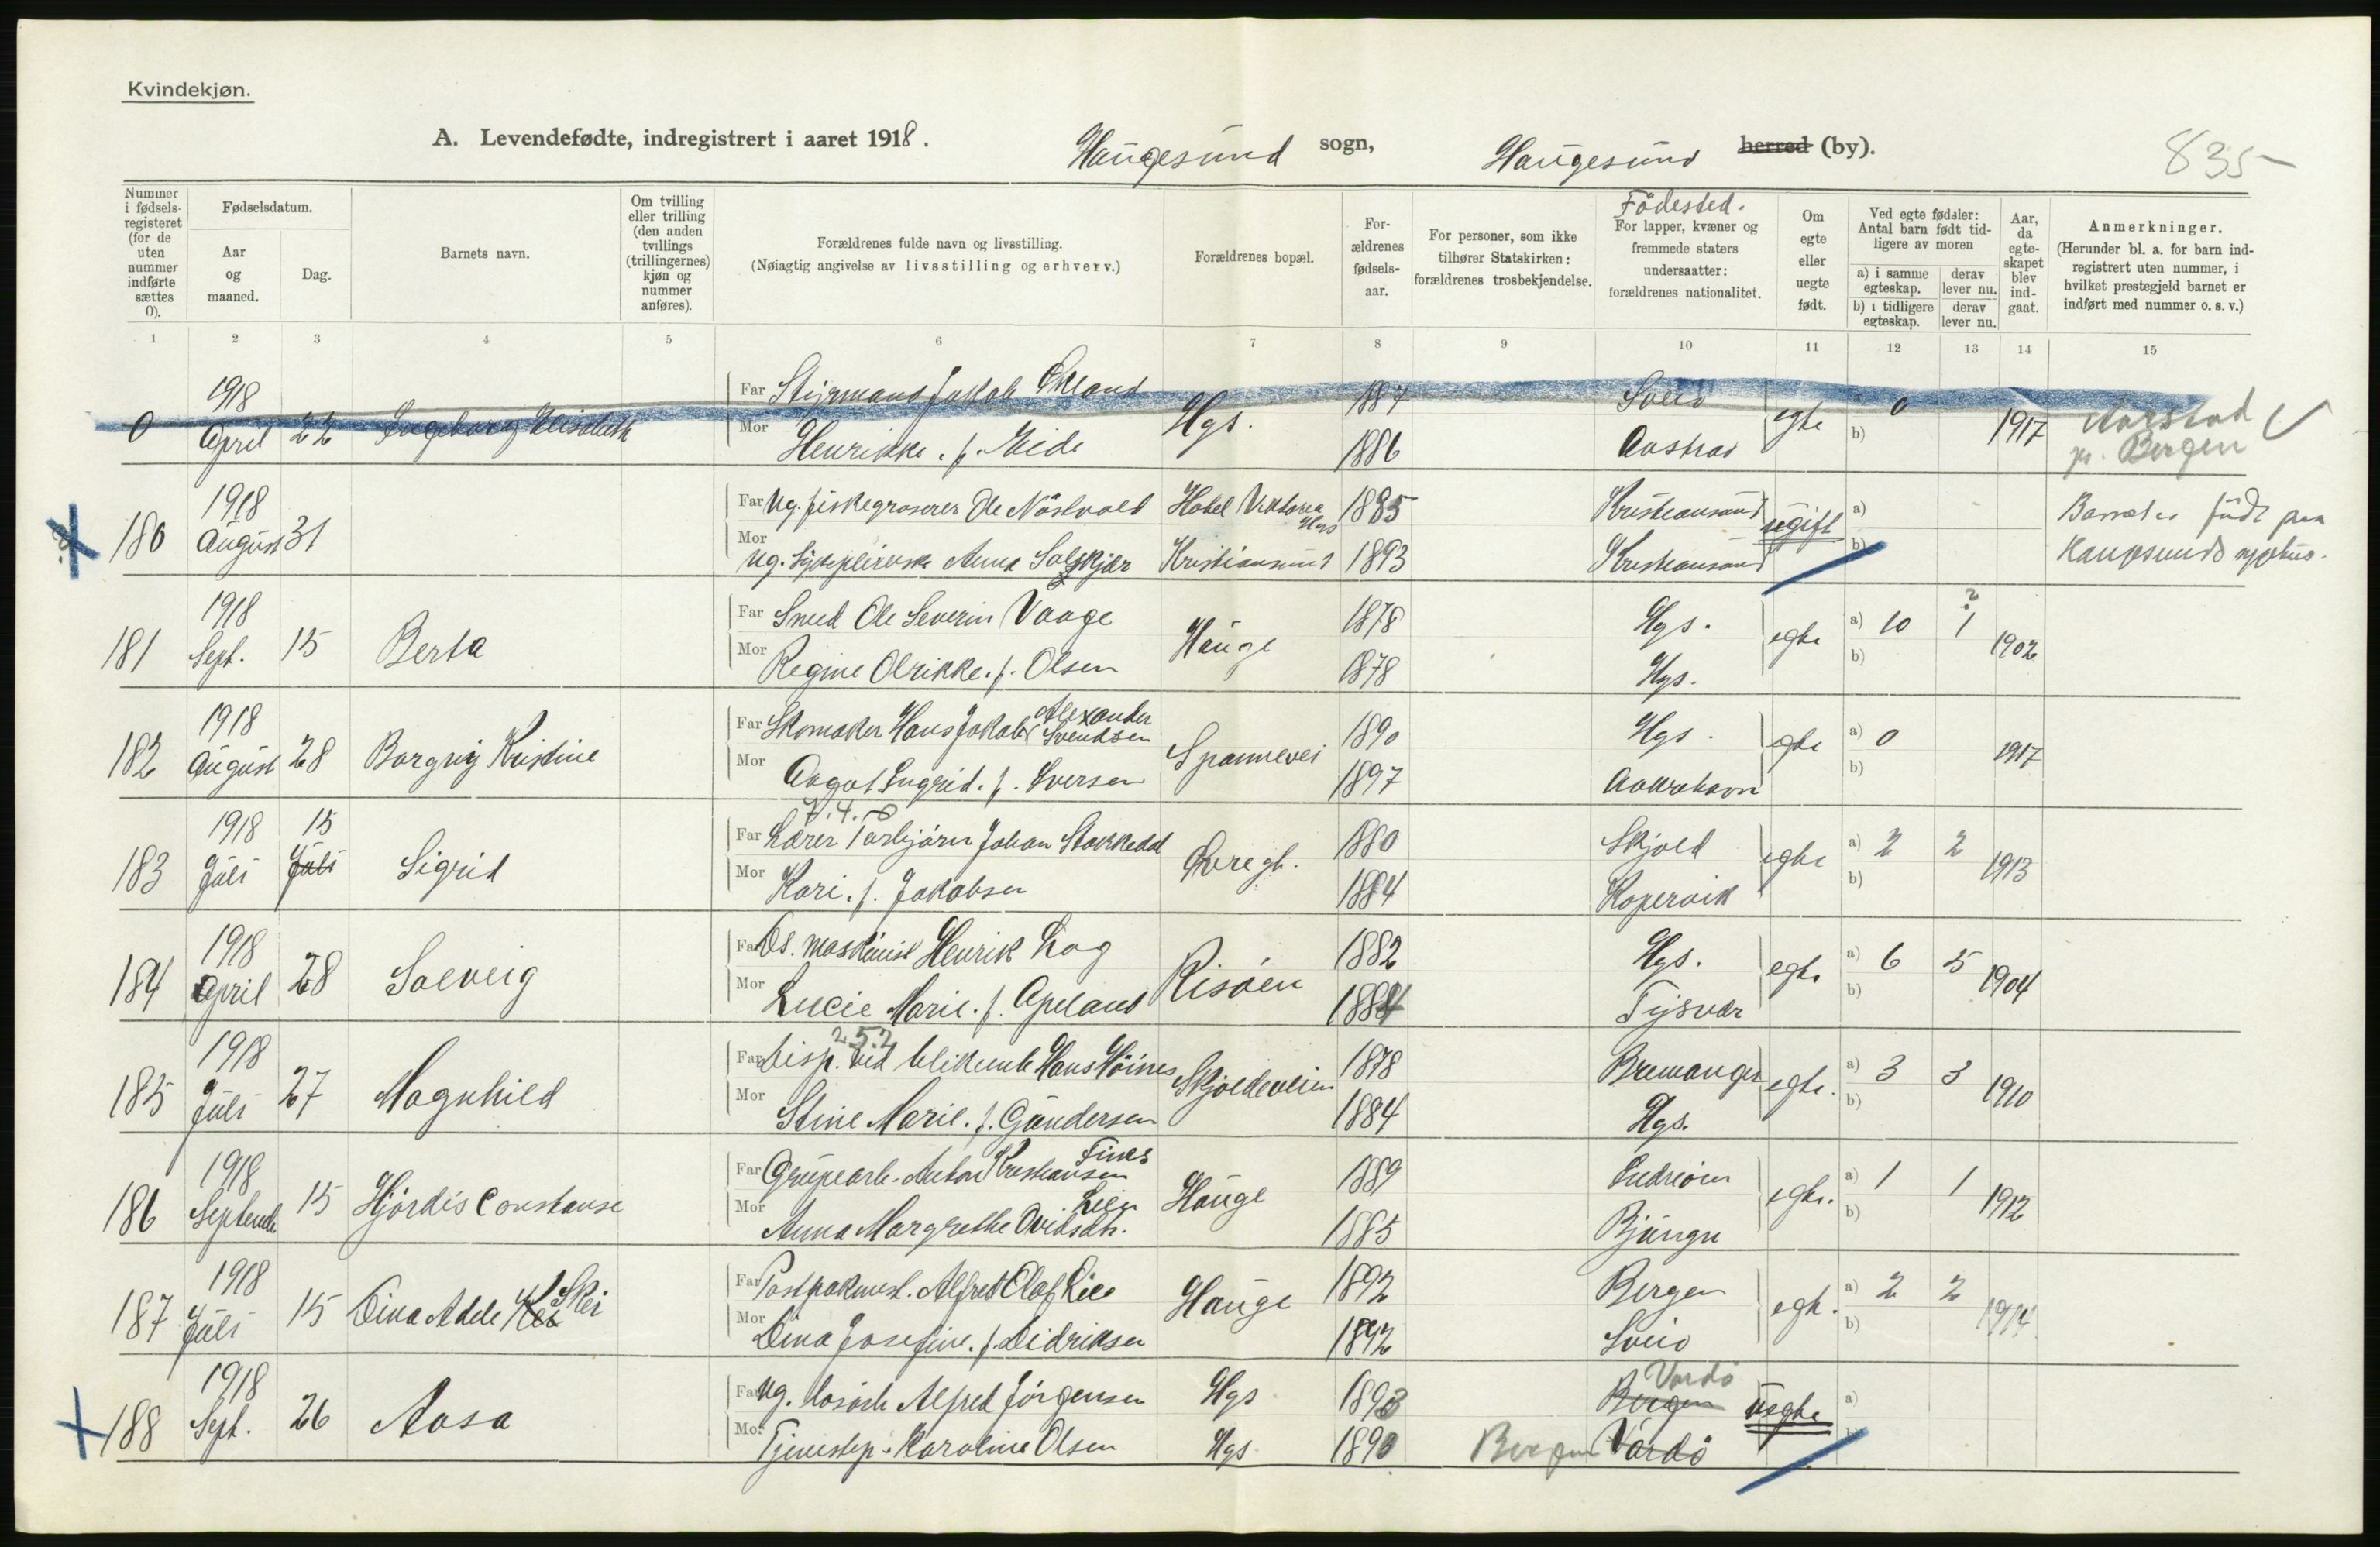 Kvindekjøn.
A. Levendefødte, indregistrert i aaret 1918.
Haugesund sogn, Haugesund herred (by).
835
Nummer i fødsels-registeret (for de uten nummer indførte sættes 0).
Fødselsdatum.
Aar og maaned.
Dag.
Barnets navn.
Om tvilling eller trilling (den anden tvillings (trillingernes) kjøn og nummer anføres).
Forældrenes fulde navn og livsstilling.
(Nøiagtig angivelse av livsstilling og erhverv.)
Forældrenes bopæl.
For-ældrenes fødsels-aar.
For personer, som ikke tilhører Statskirken: forældrenes trosbekjendelse.
Födested.
For lapper, kvæner og fremmede staters undersaatter: forældrenes nationalitet.
Om egte eller uegte født.
Ved egte fødsler: Antal barn født tid-ligere av moren
a) i samme egteskap.
derav lever nu.
b) i tidligere egteskap.
derav lever nu.
Aar, da egte-skapet blev ind-gaat.
Anmerkninger.
(Herunder bl. a. for barn ind-registrert uten nummer, i hvilket prestegjeld barnet er indført med nummer o. s. v.)
1 2 3 4 5 6 7 8 9 10 11 12 13 14 15
0 1918 April 22 Ingeborg Elisabeth
Far Styrmand Jakob Økland Hgs. 1887 Sveio egte 0 1917 Aarstad
Mor Henrikke. f. Eide 1886 b) pr. Bergen
180 1918 August 31
Far Ug. fiskegroserer Ole Nöstvold Hotel Viktoria Hgs 1885 Kristiansund ugift a) Barnet er födt paa
Mor Ug. Anna Kristiansund 1893 Kristiansund b) Haugesunds sykehus.
181 1918 Sept. 15 Berta
Far Smed Ole Severin Vaage Hauge 1878 Hgs. egte a) 10 1 ? 1902
Mor Regine Olrikke. f. Olsen 1878 Hgs. b)
182 1918 August 28 Borgny Kristine
Far Skomaker Hans Jakob Alexander Svendsen Spannevei 1890 Hgs. egte a) 0 1917
Mor Aagot Ingrid. f. Iversen 1897 Aakrehavn b)
7.4.8
183 1918 Juli 15 Juli Sigrid
Far Lærer Torbjörn Johan Stakkedal Övregt. 1880 Skjold egte a) 2 2 1913
Mor Kari. f. Jakobsen 1884 Kopervik b)
184 1918 April 28 Solveig
Far Ds. maskinist Henrik Log Risöen 1882 Hgs. egte a) 6 5 1904
Mor Lucie Marie. f. Apeland 1884 Tysvær b)
252
185 1918 Juli 27 Magnhild
Far Disp. ved Hans Höines Skjoldeveien 1878 Bremanger egte. a) 3 3 1910
Mor Stine Marie. f. Gundersen 1884 Hgs. b)
186 1918 Septemb 15 Hjördis Constanse
Far Grupearb. Anton Kristiansen Fines Hauge 1889 egte. a) 1 1 1912
Mor Anna Margrethe Lien 1885 Bjüngn b)
187 1918 Juli 15 Dina Adele Skei
Far Alfred Olaf Lie Hauge 1892 Bergen egte. a) 2 2 1914
Mor Dina Josefine. f. Didriksen 1892 Sveio b)
188 1918 Sept. 26 Aasa
Far Ug. Alfred Jörgensen Hgs 1893 Bergen Vardö uegte a)
Mor Tjenestep. Karoline Olsen Hgs. 1890 Bergen Vardö